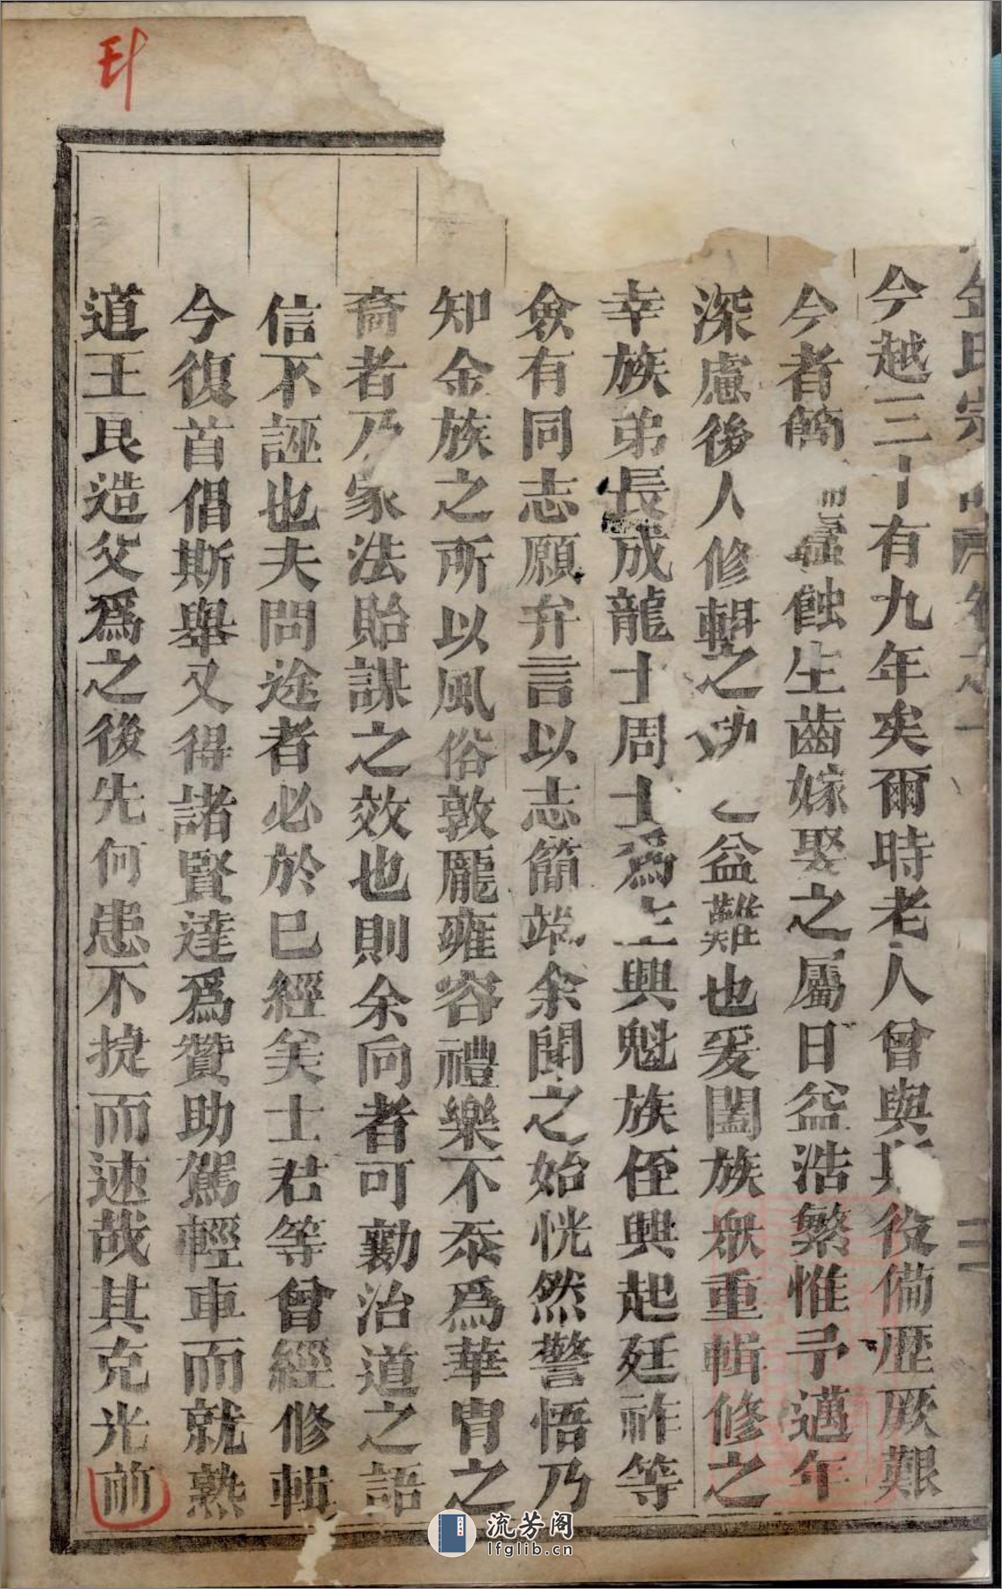 金氏宗譜 卷之一
今越三十有九年矣爾時老人曾與其役備歷厥艱
今者簡蠹蝕生齒嫁娶之屬日益浩繁惟予邁年
深慮後人修輯之功益難也爰闔族眾重輯修之
幸族弟長成龍士周士為士興魁族侄興起廷祚等
僉有同志願弁言以志簡端余聞之始恍然警悟乃
知金族之所以風俗敦龐雍容禮樂不忝爲華胄之
裔者乃家法貽謀之效也則余向者可勷治道之語
信不誣也夫問途者必於已經矣士君等曾經修輯
今復首倡斯舉又得諸賢達爲贊助駕輕車而就熟
道王良造父爲之後先何患不捷而速哉其克光前
流芳阁
lfglib.cn